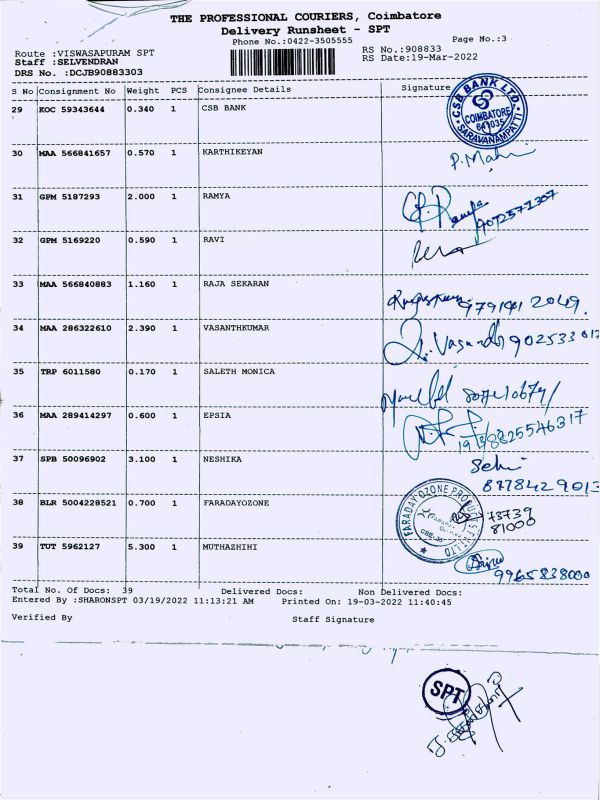 THE PROFESSIONAL COURIERS, Coimbatore
Delivery Runsheet - SPT
Phone No:0422-3505555 Page No.:3
Route :VISWASAPURAM SPT RS No.:908833
Staff :SELVENDRAN RS Date:19-Mar-2022
DRS No. :DCJB90883303
S No Consignment No Weight PCS Consignee Details Signature
29 KOC 59343644 0.340 1 CSB BANK
CSB BANK LTD.
COIMBATORE
641035
SARAVANAMPATTI
30 MAA 566841657 0.570 1 KARTHIKEYAN
31 GPM 5187293 2.000 1 RAMYA
32 GPM 5169220 0.590 1 RAVI
33 MAA 566840883 1.160 1 RAJA SEKARAN
34 MAA 286322610 2.390 1 VASANTHKUMAR
35 TRP 6011580 0.170 1 SALETH MONICA
36 MAA 289414297 0.600 1 EPSIA
37 SPB 50096902 3.100 1 NESHIKA
38 BLR 5004228521 0.700 1 FARADAYOZONE
FARADAY OZONE PRODUCTS
73739
81000
39 TUT 5962127 5.300 1 MUTHAZHIHI
9965838000
Total No. Of Docs: 39 Delivered Docs: Non Delivered Docs:
Entered By :SHARONSPT 03/19/2022 11:13:21 AM Printed On: 19-03-2022 11:40:45
Verified By Staff Signature
SPT